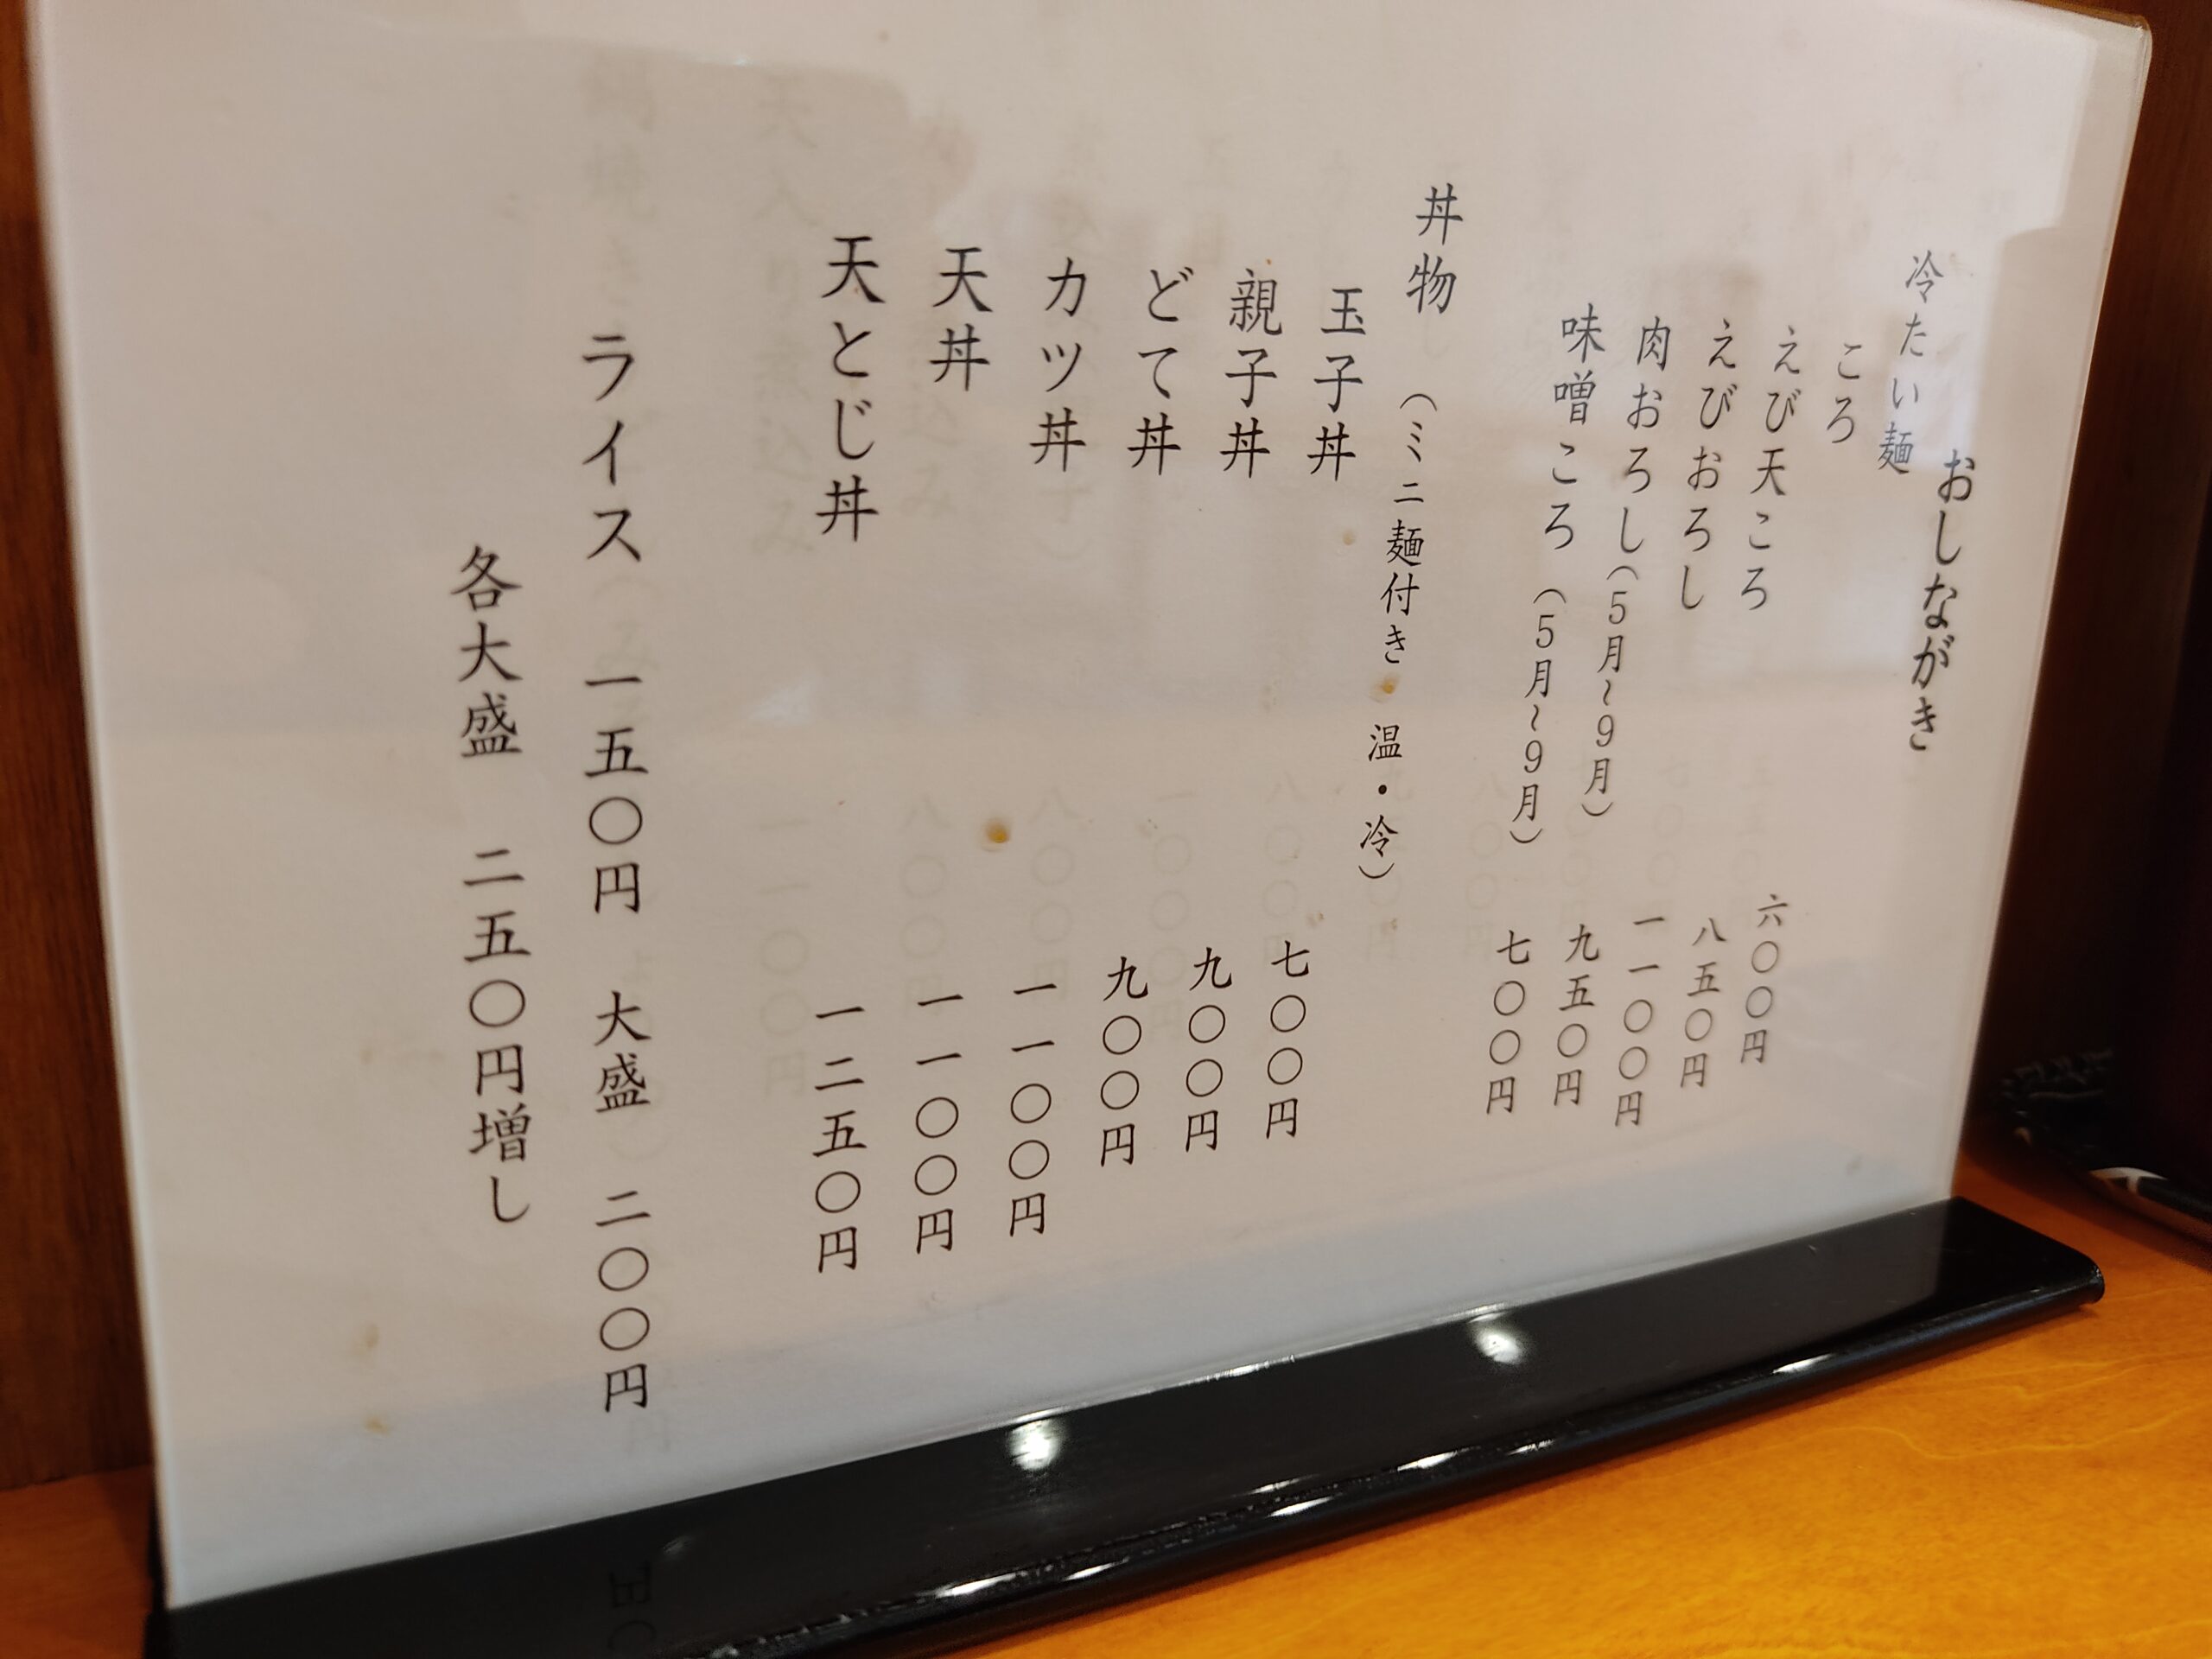 おしながき
冷たい麺
ころ 六〇〇円
えび天ころ 八五〇円
えびおろし 一一〇〇円
肉おろし（5月～9月） 九五〇円
味噌ころ（5月～9月） 七〇〇円
丼物（ミニ麺付き 温・冷）
玉子丼 七〇〇円
親子丼 九〇〇円
どて丼 九〇〇円
カツ丼 一一〇〇円
天丼 一一〇〇円
天とじ丼 一二五〇円
ライス 一五〇円 大盛 二〇〇円
各大盛 二五〇円増し